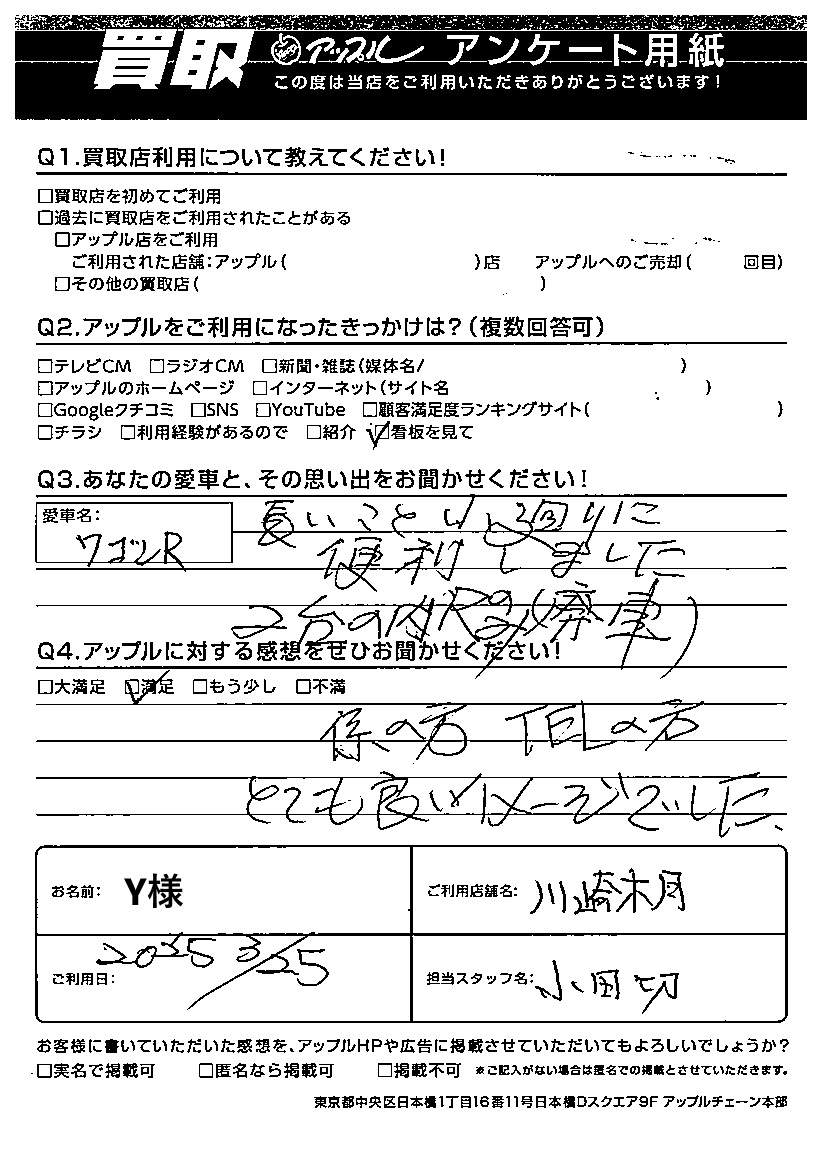 買取 アップル アンケート用紙
この度は当店をご利用いただきありがとうございます!
Q1.買取店利用について教えてください!
□買取店を初めてご利用
□過去に買取店をご利用されたことがある
□アップル店をご利用
ご利用された店舗:アップル( )店 アップルへのご売却( 回目)
□その他の買取店( )
Q2.アップルをご利用になったきっかけは?(複数回答可)
□テレビCM □ラジオCM □新聞・雑誌(媒体名/ )
□アップルのホームページ □インターネット(サイト名 )
□Googleクチコミ □SNS □YouTube □顧客満足度ランキングサイト( )
□チラシ □利用経験があるので □紹介 ☑看板を見て
Q3.あなたの愛車と、その思い出をお聞かせください!
愛車名:
ワゴンR
長いこと 回りに
便利しました
2台の内Rのみ(廃車)
Q4.アップルに対する感想をぜひお聞かせください!
□大満足 ☑満足 □もう少し □不満
係の方 TELの方
とても良いイメージでした、
お名前: Y様
ご利用店舗名: 川崎木月
ご利用日: 2025 3/25
担当スタッフ名: 小田切
お客様に書いていただいた感想を、アップルHPや広告に掲載させていただいてもよろしいでしょうか?
□実名で掲載可 □匿名なら掲載可 □掲載不可 ※ご記入がない場合は匿名での掲載とさせていただきます。
東京都中央区日本橋1丁目16番11号日本橋Dスクエア9F アップルチェーン本部